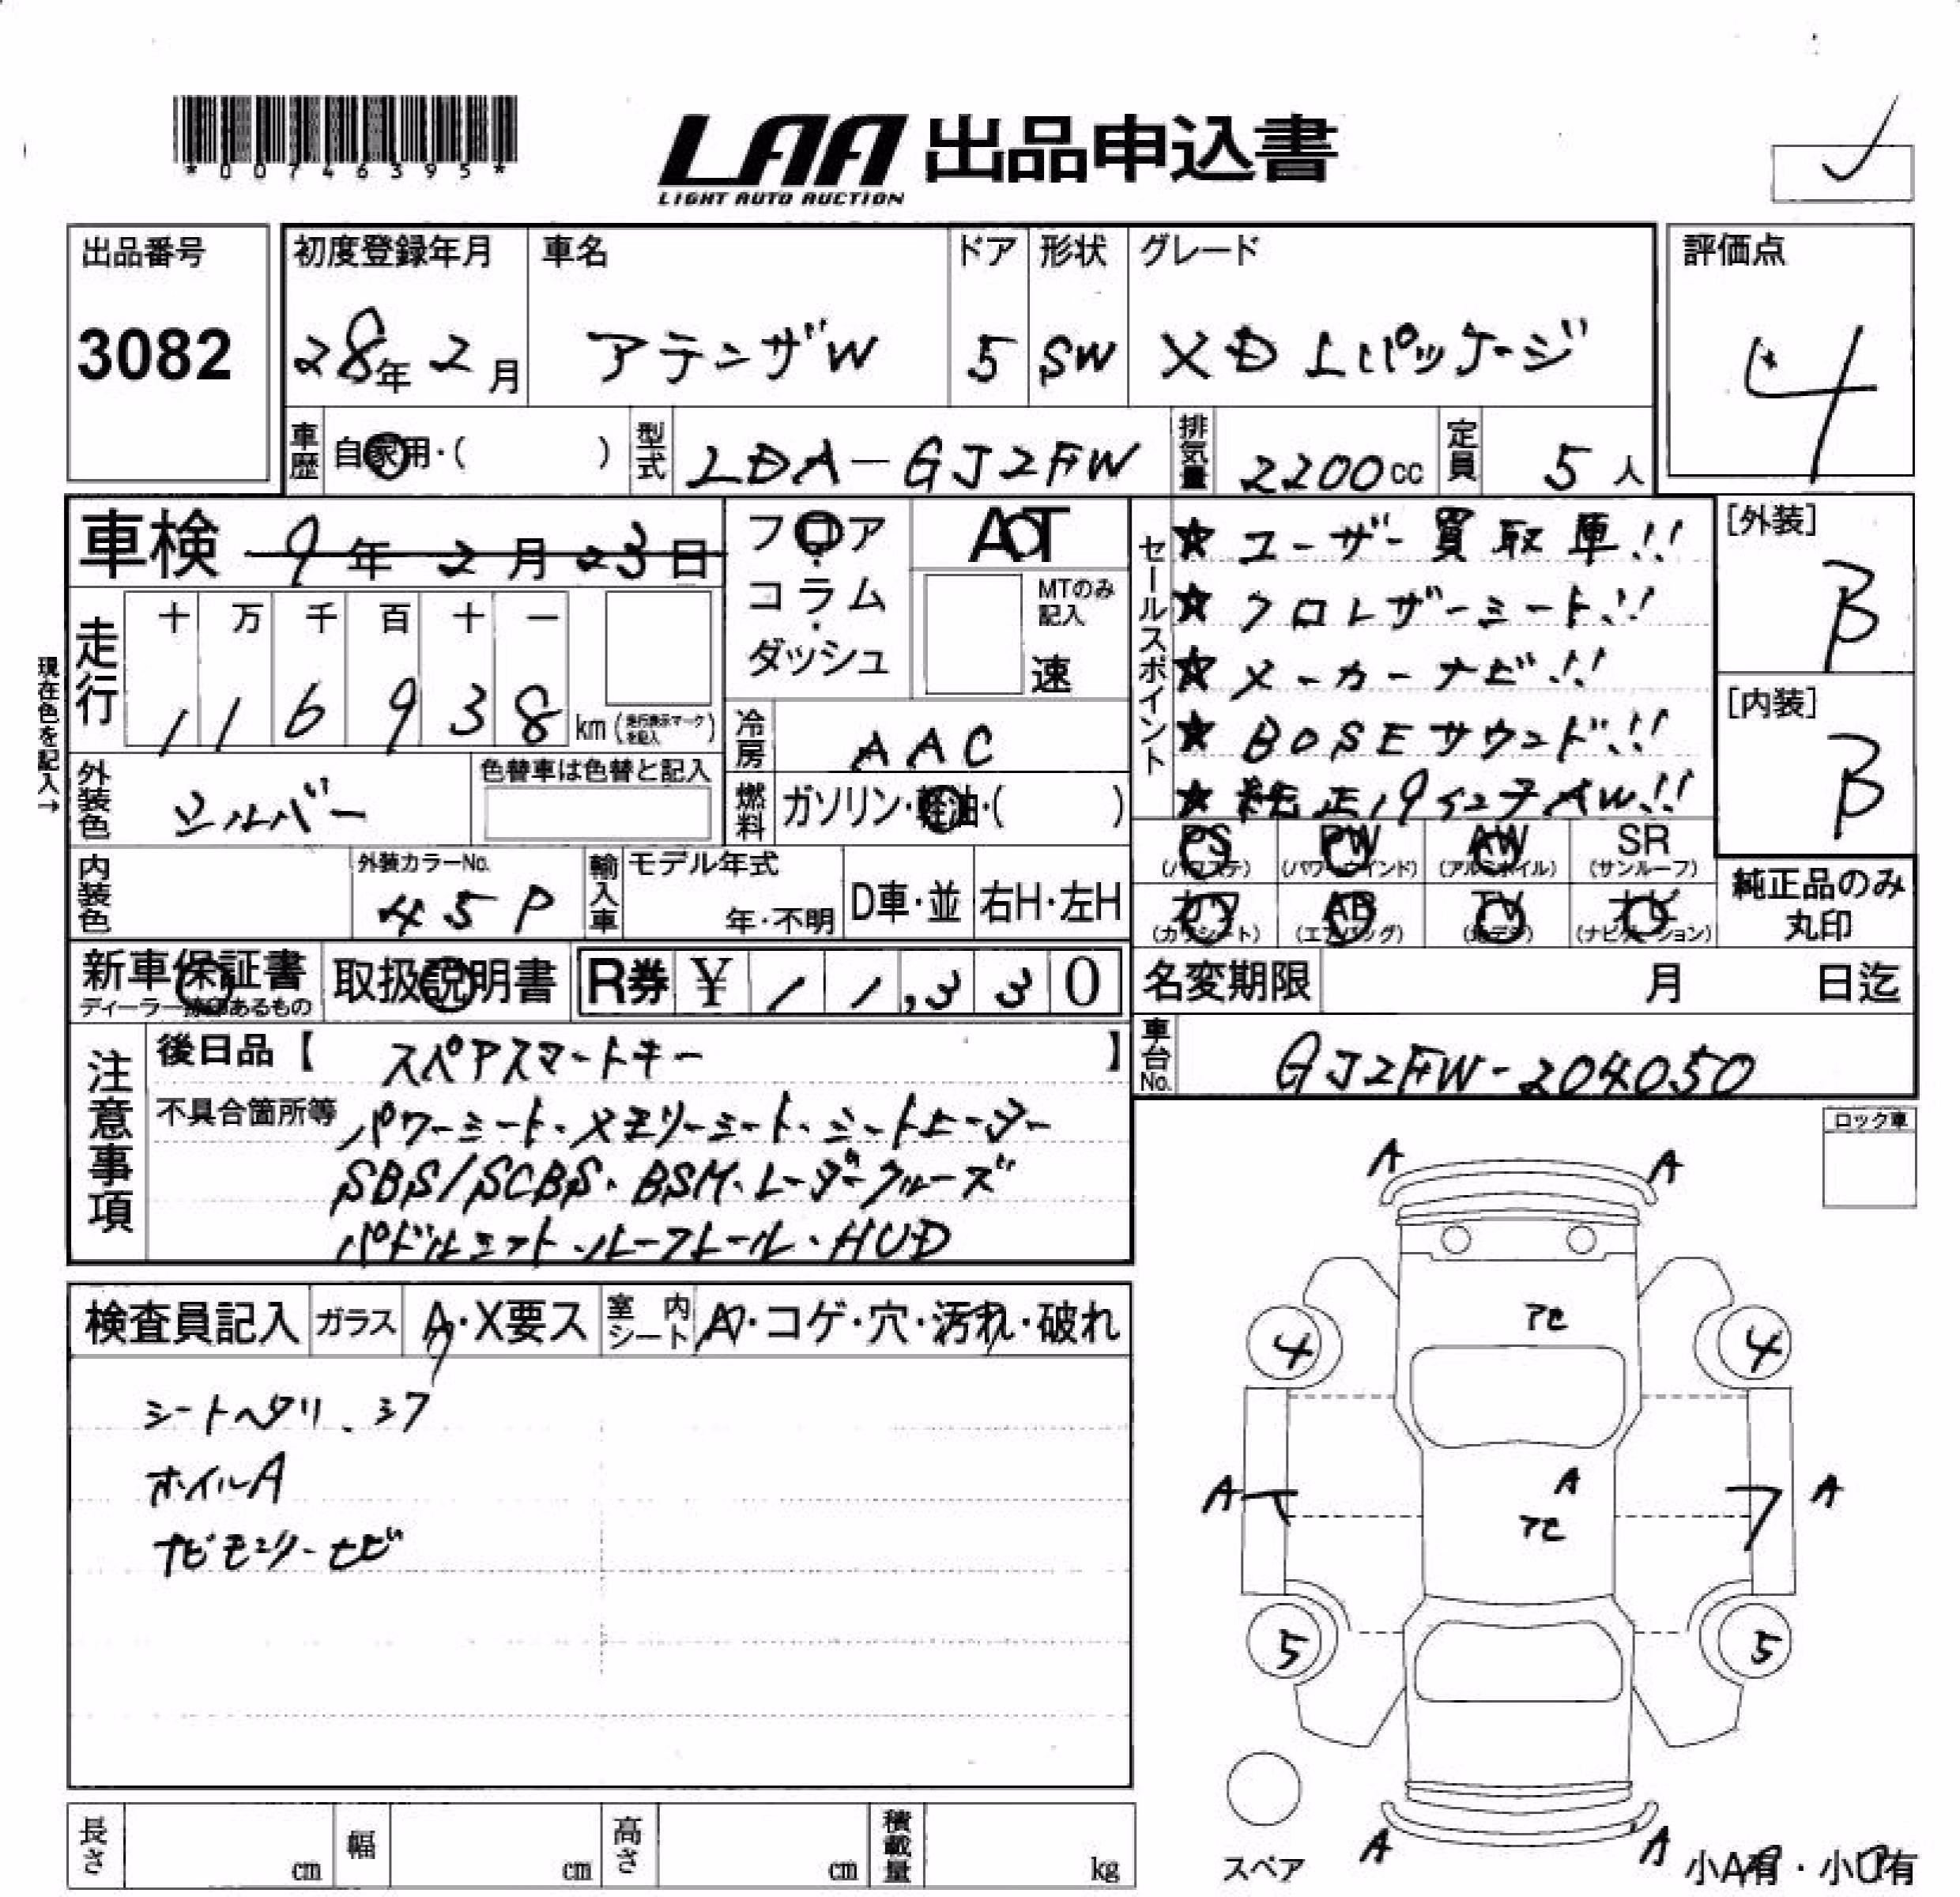 *00746395*
LAA 出品申込書
LIGHT AUTO AUCTION
出品番号 初度登録年月 車名 ドア 形状 グレード 評価点
3082 28年 2月 アテンザW 5 SW XD Lパッケージ 4
車歴 自家用・( ) 型式 LDA-GJ2FW 排気量 2200cc 定員 5人
車検 9年 2月 23日
フロア
コラム
ダッシュ
AT
MTのみ記入
速
セールスポイント
★ユーザー買取車!!
★クロレザーシート!!
★メーカーナビ!!
★BOSEサウンド!!
★純正19インチAW!!
[外装]
B
[内装]
B
現在色を記入→
走行 十 万 千 百 十 一
116938 km (走行表示マークを記入)
冷房 AAC
外装色 シルバー 色替車は色替と記入
燃料 ガソリン・軽油・( )
PS (パワステ) PW (パワーウインド) AW (アルミホイル) SR (サンルーフ)
カワ (カワシート) AB (エアバッグ) TV (地デジ) ナビ (ナビゲーション)
純正品のみ丸印
内装色 外装カラーNo. 45P 輸入車 モデル年式 年・不明 D車・並 右H・左H
新車保証書 取扱説明書 R券 ¥ 11,330
名変期限 月 日迄
車台No. GJ2FW-204050
注意事項
後日品【 スペアスマートキー 】
不具合箇所等 パワーシート・メモリーシート・シートヒーター
SBS/SCBS・BSM・レーダークルーズ
パドルシフト・ルーフレール・HUD
ロック車
検査員記入 ガラス A・X要ス 室内シート ・コゲ・穴・汚れ・破れ
シートヘタリ、シワ
ホイルA
A A
アセ
4 4
A A
A
アセ
5 5
A A
スペア 小A有・小U有
長さ cm 幅 cm 高さ cm 積載量 kg